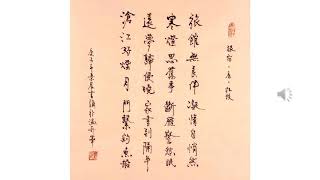 旅宿·唐·杜牧
旅館無良伴凝情自悄然
寒燈思舊事斷雁警愁眠
遠夢歸侵曉家書到隔年
滄江好煙月門繫釣魚船